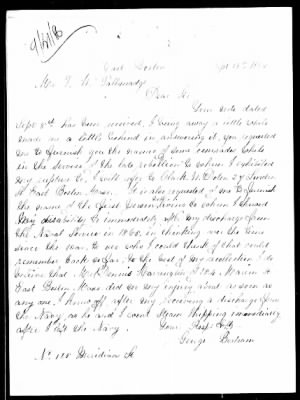 9/21/86
East Boston Sept 18th
Mr. T. W.
Dear Sir
Your note dated
Sept 8th has been received, I being away a little while
made me a little behind in answering it, you requested
me to furnish you the names of some comrades while
in the service of the late rebellion to whom I exhibited
my rupture to, I will refer to Clark W.
St East Boston Mass. It is also requested of me to furnish
the name of the first Person to whom I showed
my disability to immediately after my discharge from
the Naval Service in 1865, in thinking over the time
since the war, to see who I could think of that could
remember back so far, to the best of my recollection I do
believe that Mr. Dennis No 204 St
East Boston Mass did see my injury about as soon as
any one, I being off after my receiving a discharge from
the Navy, as he and I went Steam Shipping immediately
after I left the Navy.
Yours Resp
George Bertram
No 120 Meridian St